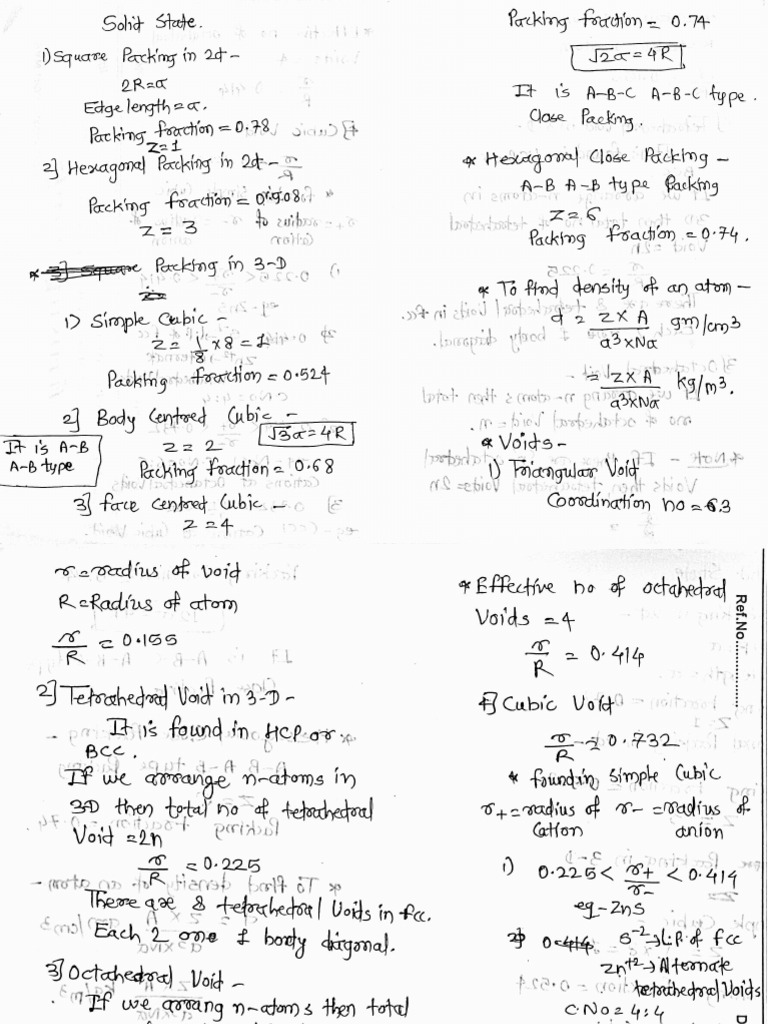 Solid State.
1) Square Packing in 2d -
2R=a
Edge length = a.
Packing fraction = 0.78
Z=1
2] Hexagonal Packing in 2d -
Packing fraction = 0.908
Z = 3
* Packing in 3-D
1) Simple Cubic -
Z = 1/8 × 8 = 1
Packing fraction = 0.524
2] Body Centred Cubic -
Z = 2
√3a = 4R
It is A-B
A-B type
Packing fraction = 0.68
3] face centred Cubic -
Z = 4
Packing fraction = 0.74
√2a = 4R
It is A-B-C A-B-C type.
Close Packing.
* Hexagonal Close Packing -
A-B A-B type Packing
Z = 6
Packing fraction = 0.74.
* To find density of an atom -
d = Z × A / a³×Na gm/cm3
= Z × A / a³×Na kg/m³.
* Voids -
1) Triangular Void
Coordination no = 3
r = radius of void
R = Radius of atom
r/R = 0.155
2] Tetrahedral Void in 3-D -
It is found in HCP or
BCC.
If we arrange n-atoms in
3D then total no of tetrahedral
Void = 2n
r/R = 0.225
There are 8 tetrahedral Voids in fcc.
Each 2 one 1 body diagonal.
3] Octahedral Void -
If we arrang n-atoms then total
* Effective no of octahedral
Voids = 4
r/R = 0.414
4] Cubic Void
r/R = 0.732
* found in simple Cubic
r+ = radius of r- = radius of
Cation anion
i) 0.225 < r+/r- < 0.414
eg - ZnS
S-2 → L.P. of fcc
Zn+2 → Alternate
tetrahedral Voids
C.No = 4:4
Ref.No